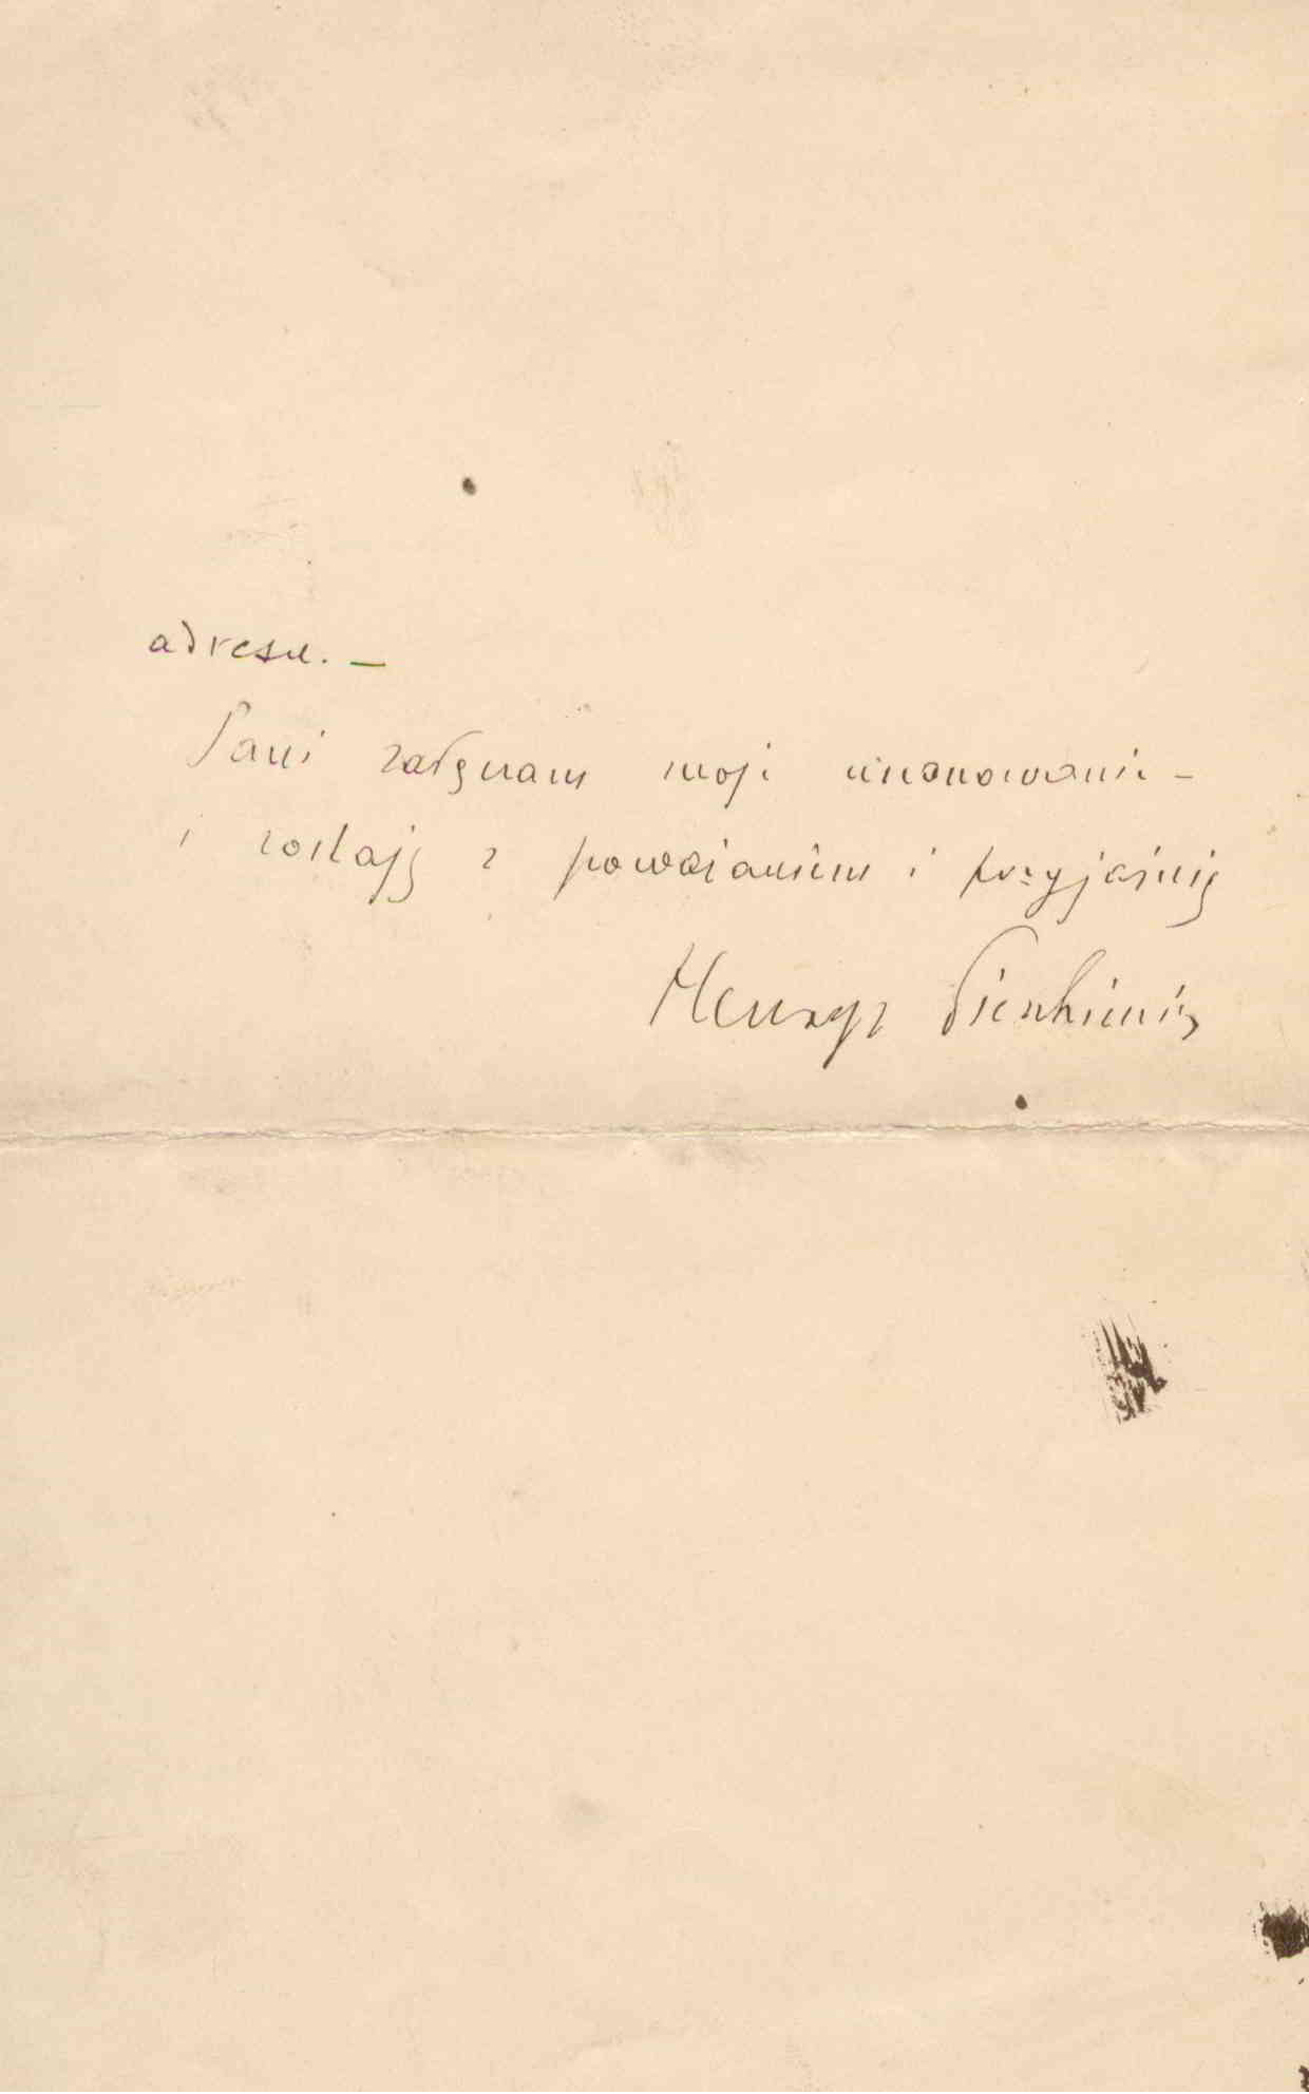 adresu. —
Pani załączam moje uszanowanie -
i zostaję z poważaniem i przyjaźnią
Henryk Sienkiewicz